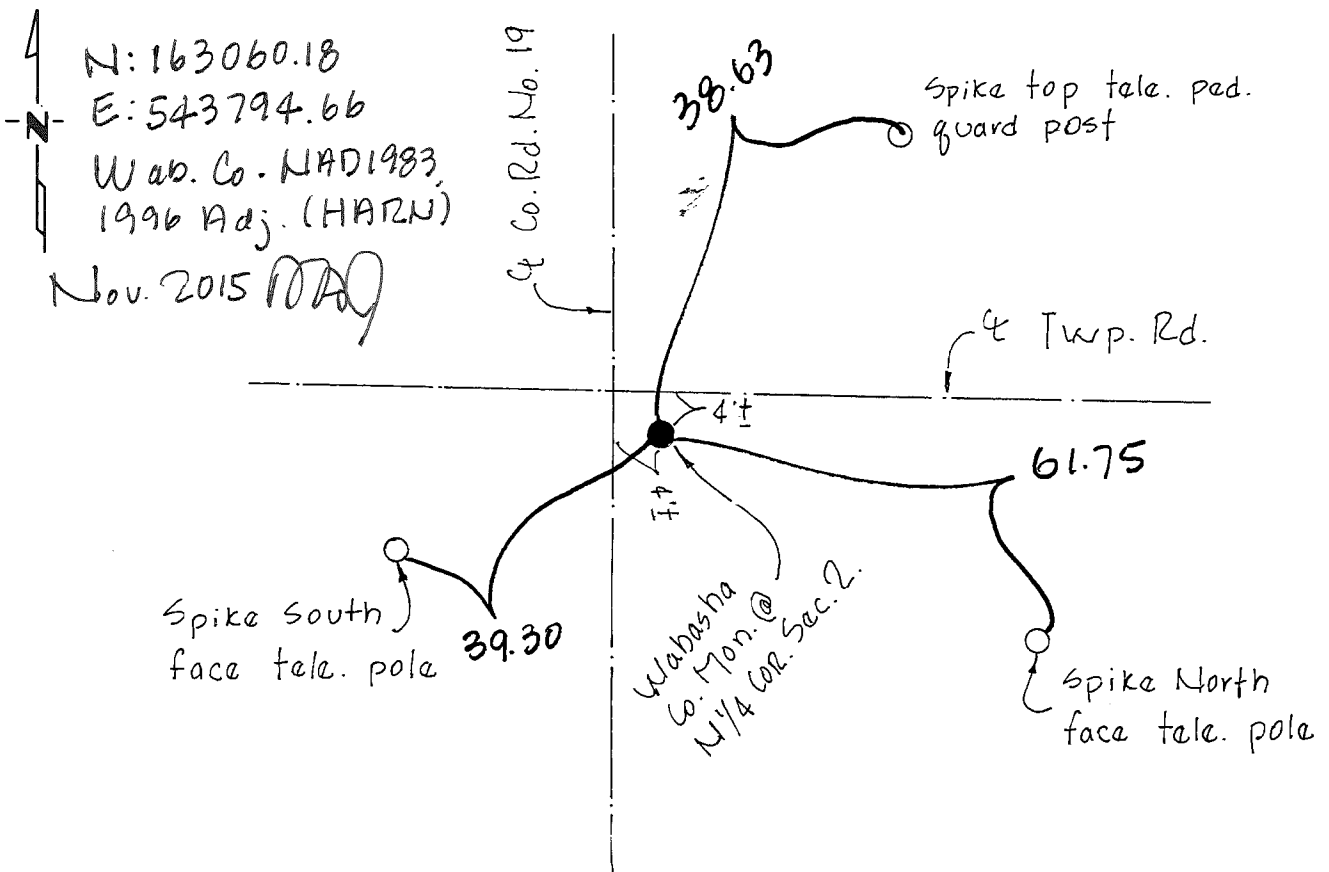 N
N: 163060.18
E: 543794.66
Wab. Co. NAD1983,
1996 Adj. (HARN)
Nov. 2015
℄ Co. Rd. No. 19
38.63
Spike top tele. ped.
guard post
℄ Twp. Rd.
4'±
4'±
61.75
Spike South
face tele. pole
39.30
Wabasha
Co. Mon. @
N1/4 Cor. Sec. 2.
Spike North
face tele. pole